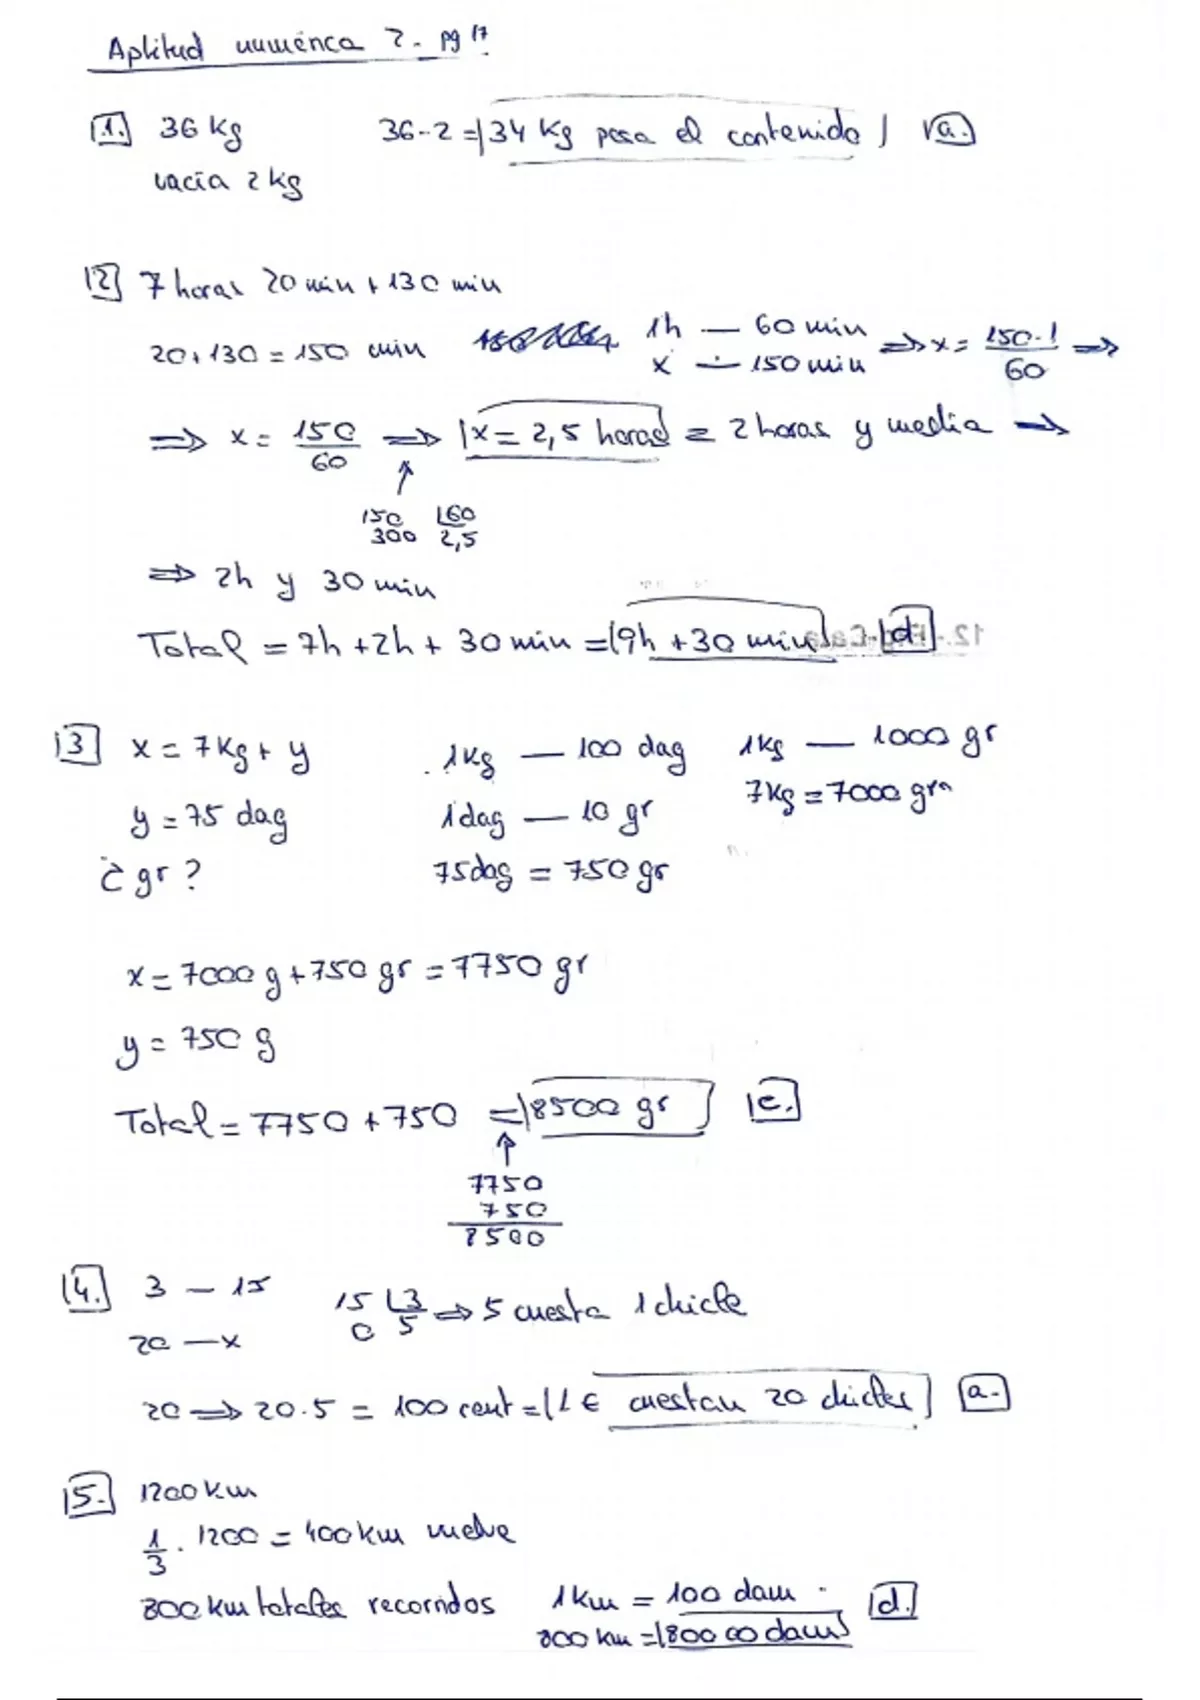 Aptitud numérica 2. pg 17
1. 36 kg 36-2 = 34 kg pesa el contenido a.
vacía 2 kg
2 7 horas 20 min + 130 min
20+130 = 150 min 1h — 60 min ⇒ x = 150·1/60 ⇒
x — 150 min
⇒ x = 150/60 ⇒ x = 2,5 horas = 2 horas y media ⇒
↑
150 60
300 2,5
⇒ 2h y 30 min
Total = 7h + 2h + 30 min = 9h + 30 min d.
3 x = 7 kg + y 1 kg — 100 dag 1 kg — 1000 gr
y = 75 dag 1 dag — 10 gr 7 kg = 7000 gr
¿ gr? 75 dag = 750 gr
x = 7000 g + 750 gr = 7750 gr
y = 750 g
Total = 7750 + 750 = 8500 gr c.
↑
7750
750
8500
4. 3 — 15 15 3 ⇒ 5 cuesta 1 chicle
0 5
20 — x
20 ⇒ 20·5 = 100 cent = 1 € cuestan 20 chicles a.
5. 1200 km
1/3 · 1200 = 400 km vuelve
800 km totales recorridos 1 km = 100 dam d.
800 km = 80000 dam